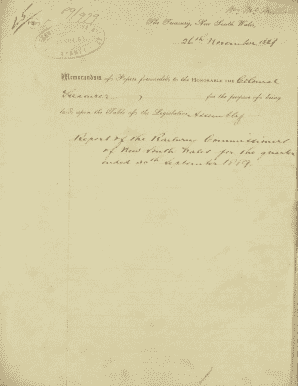 The Treasury, New South Wales,
26th November 18
Memorandum of a Paper forwarded to the HONORABLE THE Colonial
Treasurer, for the purpose of being
laid upon the Table of the Legislative Assembly
Report of the Railway Commissioners
of New South Wales for the quarter
ended 30th September 18